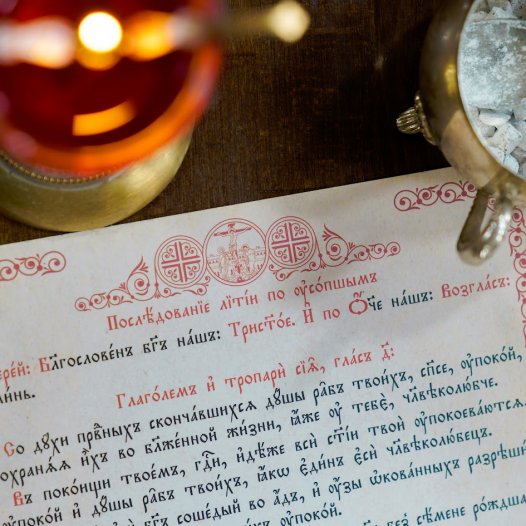 Послѣ́дованїе лїті́и по ᲂу҆со́пшымъ
ере́й: Блг҃ослове́нъ бг҃ъ на́шъ: Трист҃о́е. И҆ по Ѻ҆́ч҃е на́шъ: Возгла́съ:
ми́нь.
Глаго́лемъ и҆ тропарѝ сїѧ҄, гла́съ д҃:
Со дꙋ́хи пра́вⷣныхъ сконча́вшихсѧ дꙋ́шы ра̑бъ твои́хъ, сп҃се, ᲂу҆поко́й,
охранѧ́ѧ и҆̀хъ во бл҃же́нной жи́зни, ꙗ҆́же ᲂу҆ тебє̀, чл҃вѣколю́бче.
Въ поко́ищи твое́мъ, гдⷭ҇и, и҆дѣ́же всѝ ст҃і́и твоѝ ᲂу҆покоева́ютсѧ,
ᲂу҆поко́й и҆ дꙋ́шы ра̑бъ твои́хъ, ꙗ҆́кѡ є҆ди́нъ є҆сѝ чл҃вѣколю́бецъ.
бг҃ъ соше́дый во а҆́дъ, и҆ ᲂу҆́зы ѡ҆кова́нныхъ разрѣши́
ᲂу҆поко́й.
сѣ́мене ро́ждша